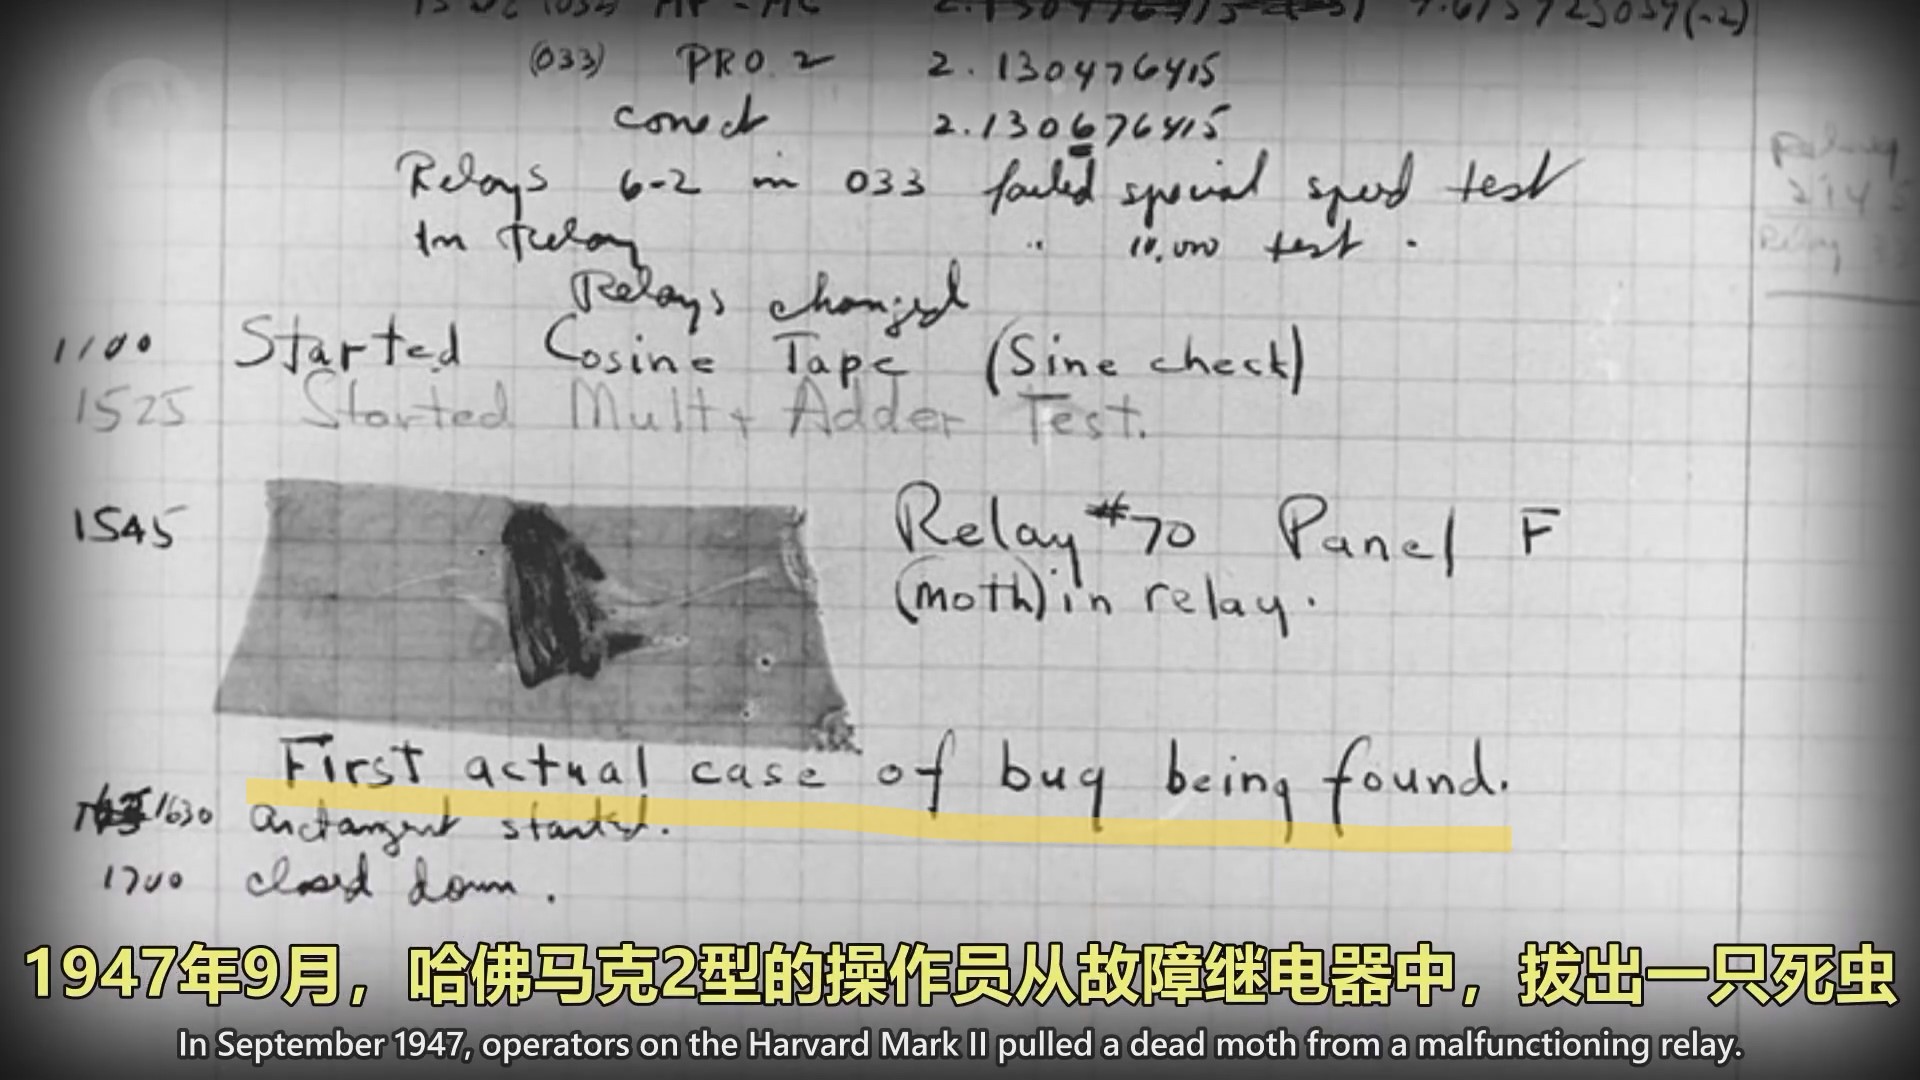 (033) PRO. 2 2.130476415
conect 2.130676415
Relays 6-2 in 033 failed special speed test
In Relay " 10,000 test .
Relays changed
1100 Started Cosine Tape (Sine check)
1525 Started Mult + Adder Test.
1545 Relay #70 Panel F
(moth) in relay.
First actual case of bug being found.
1630 arctangent started.
1700 closed down.
1947年9月，哈佛马克2型的操作员从故障继电器中，拔出一只死虫
In September 1947, operators on the Harvard Mark II pulled a dead moth from a malfunctioning relay.